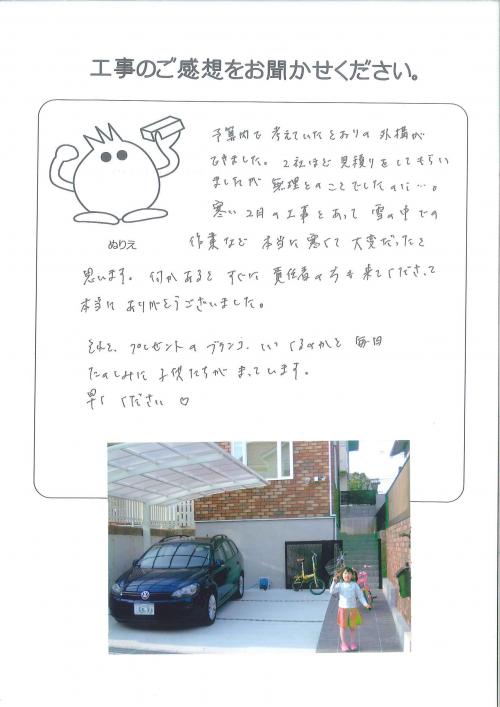 工事のご感想をお聞かせください。
予算内で考えていたとおりの外構が
できました。2社ほど見積りをしてもらい
ましたが無理とのことでしたのに…。
寒い2月の工事とあって雪の中での
ぬりえ
作業など本当に寒くて大変だったと
思います。何かあるとすぐに責任者の方も来てくださって
本当にありがとうございました。
それと、プレゼントのブランコ、いつくるのかと毎日
たのしみに子供たちがまっています。
早くください♡